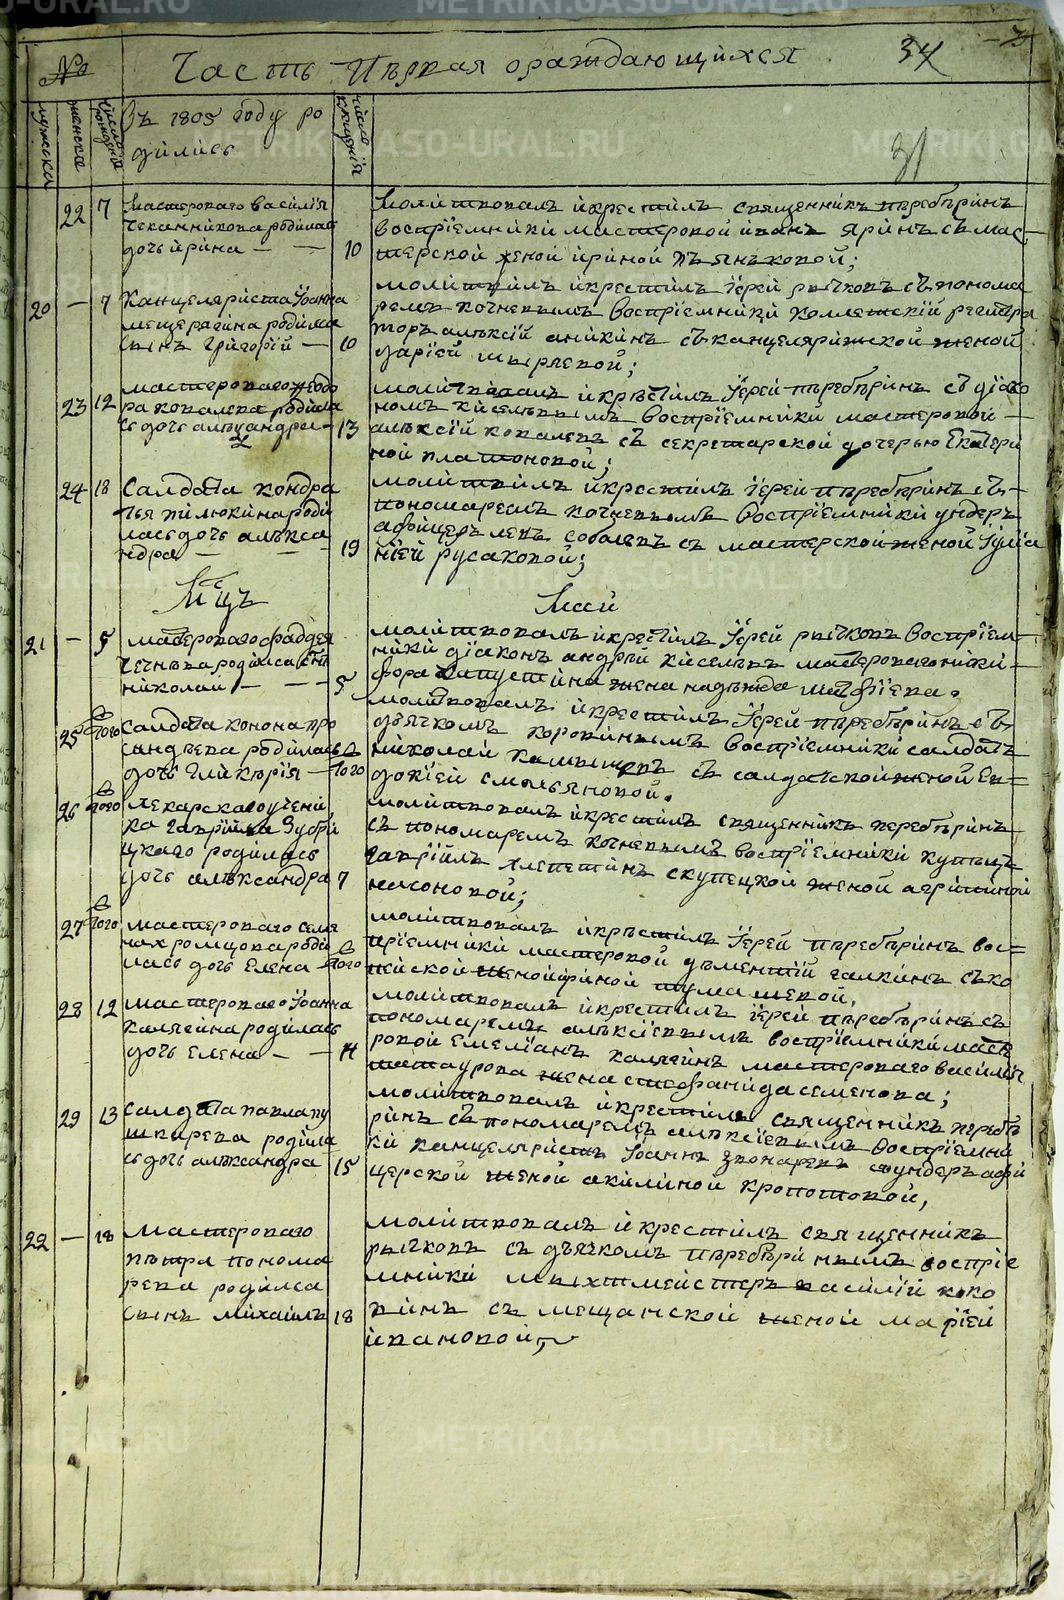 № Часть Пѣрвая ораждающихся 34
мужеска
женска
число рождений
Въ 1805 году ро
дились
число крещения
31
22 7 Мастероваго василія
Чеканникова родилась
дочь ирина — — 10
Молитвовалъ икрестилъ священникъ пѣребѣринъ
воспріемники мастеровой иванъ яринъ съ мас,
терской женой ириной пьянъковой;
20 — 7 Канцеляриста Іоанна
мещерягина родился
сынъ григорій — 10
молитвилъ икрестилъ Іерей рычковъ съ понома
ремъ кочневымъ воспріемники коллежскій регистра
торъ алѣксій аникинъ съ канцеляржской женой
даріей
23 12 мастероваго ѳеодо
ра ковалева родила
сь дочь алѣксандра — 13
молитвовалъ икрѣстилъ Іерей пѣребѣринъ съ діако
номъ киселѣвымъ воспріемники мастеровой —
алѣксій ковалевъ съ секретарской дочерью Екатери
ной платоновой;
24 18 Салдата кондра
тья пилюкина роди
лась дочь алѣкса
ндра — — 19
молитвилъ икрестилъ іерей пѣребѣринъ съ
пономаремъ кочневымъ воспріемники ундеръ
афицеръ левъ соболевъ съ мастерской женой Іуліа
ніей русаковой;
Мцъ Маій
21 — 5 мастероваго фаддея
родился сынъ
николай — — 5
молитвовалъ икрестилъ Іерей рычковъ воспріем
ники діаконъ андрѣй киселѣвъ мастероваго ники
фора капустина жена надѣжда матфіева.
25 того Салдата конона про
сандѣева родилась
дочь гликѣрія — того
молитвовалъ икрестилъ Іерей пѣребѣринъ съ
дьячкомъ коровинымъ воспріемники салдатъ
николай съ салдатской женой Ев=
докіей смольяновой.
26 того лекарскаго учени
ка гавріила Зубри
цкаго родилась
дочь алѣксандра 7
молитвовалъ икрестилъ священникъ перебѣринъ
съ пономаремъ кочневымъ воспріемники купѣцъ
гавріилъ хлепетинъ скупецкой женой агрипиной
насоновой;
27 того мастероваго семе
на хромцова роди
лась дочь Елена — того
молитвовалъ икрѣстилъ Іерей пѣребѣринъ вос=
пріемники мастеровой дѣментій галкинъ съ ко
пейской женой ириной тумашевой,
28 12 мастероваго Іоанна
калягина родилась
дочь елена — — 14
молитвовалъ икрестилъ іерей пѣребѣринъ съ
пономаремъ алѣксіевымъ воспріемники масте
ровой Емеліанъ калягинъ мастероваго василія
шатаурова жена стефанида семенова;
29 13 Салдата павла пу
шкарева родила
сь дочь алѣксандра 15
молитвовалъ икрестилъ священникъ перебѣ
ринъ съ пономаремъ алѣксіевымъ воспріемни
ки канцеляристъ Іоаннъ звонаревъ сундеръ афи
церской женой акилиной кропотовой,
22 — 18 мастероваго
пѣтра понома
рева родился
сынъ михаилъ 18
молитвовалъ икрестилъ священникъ
рычковъ съ дьячкомъ пѣребѣринымъ воспріе
мники василій коко
винъ съ мещанской женой маріей
ивановой,